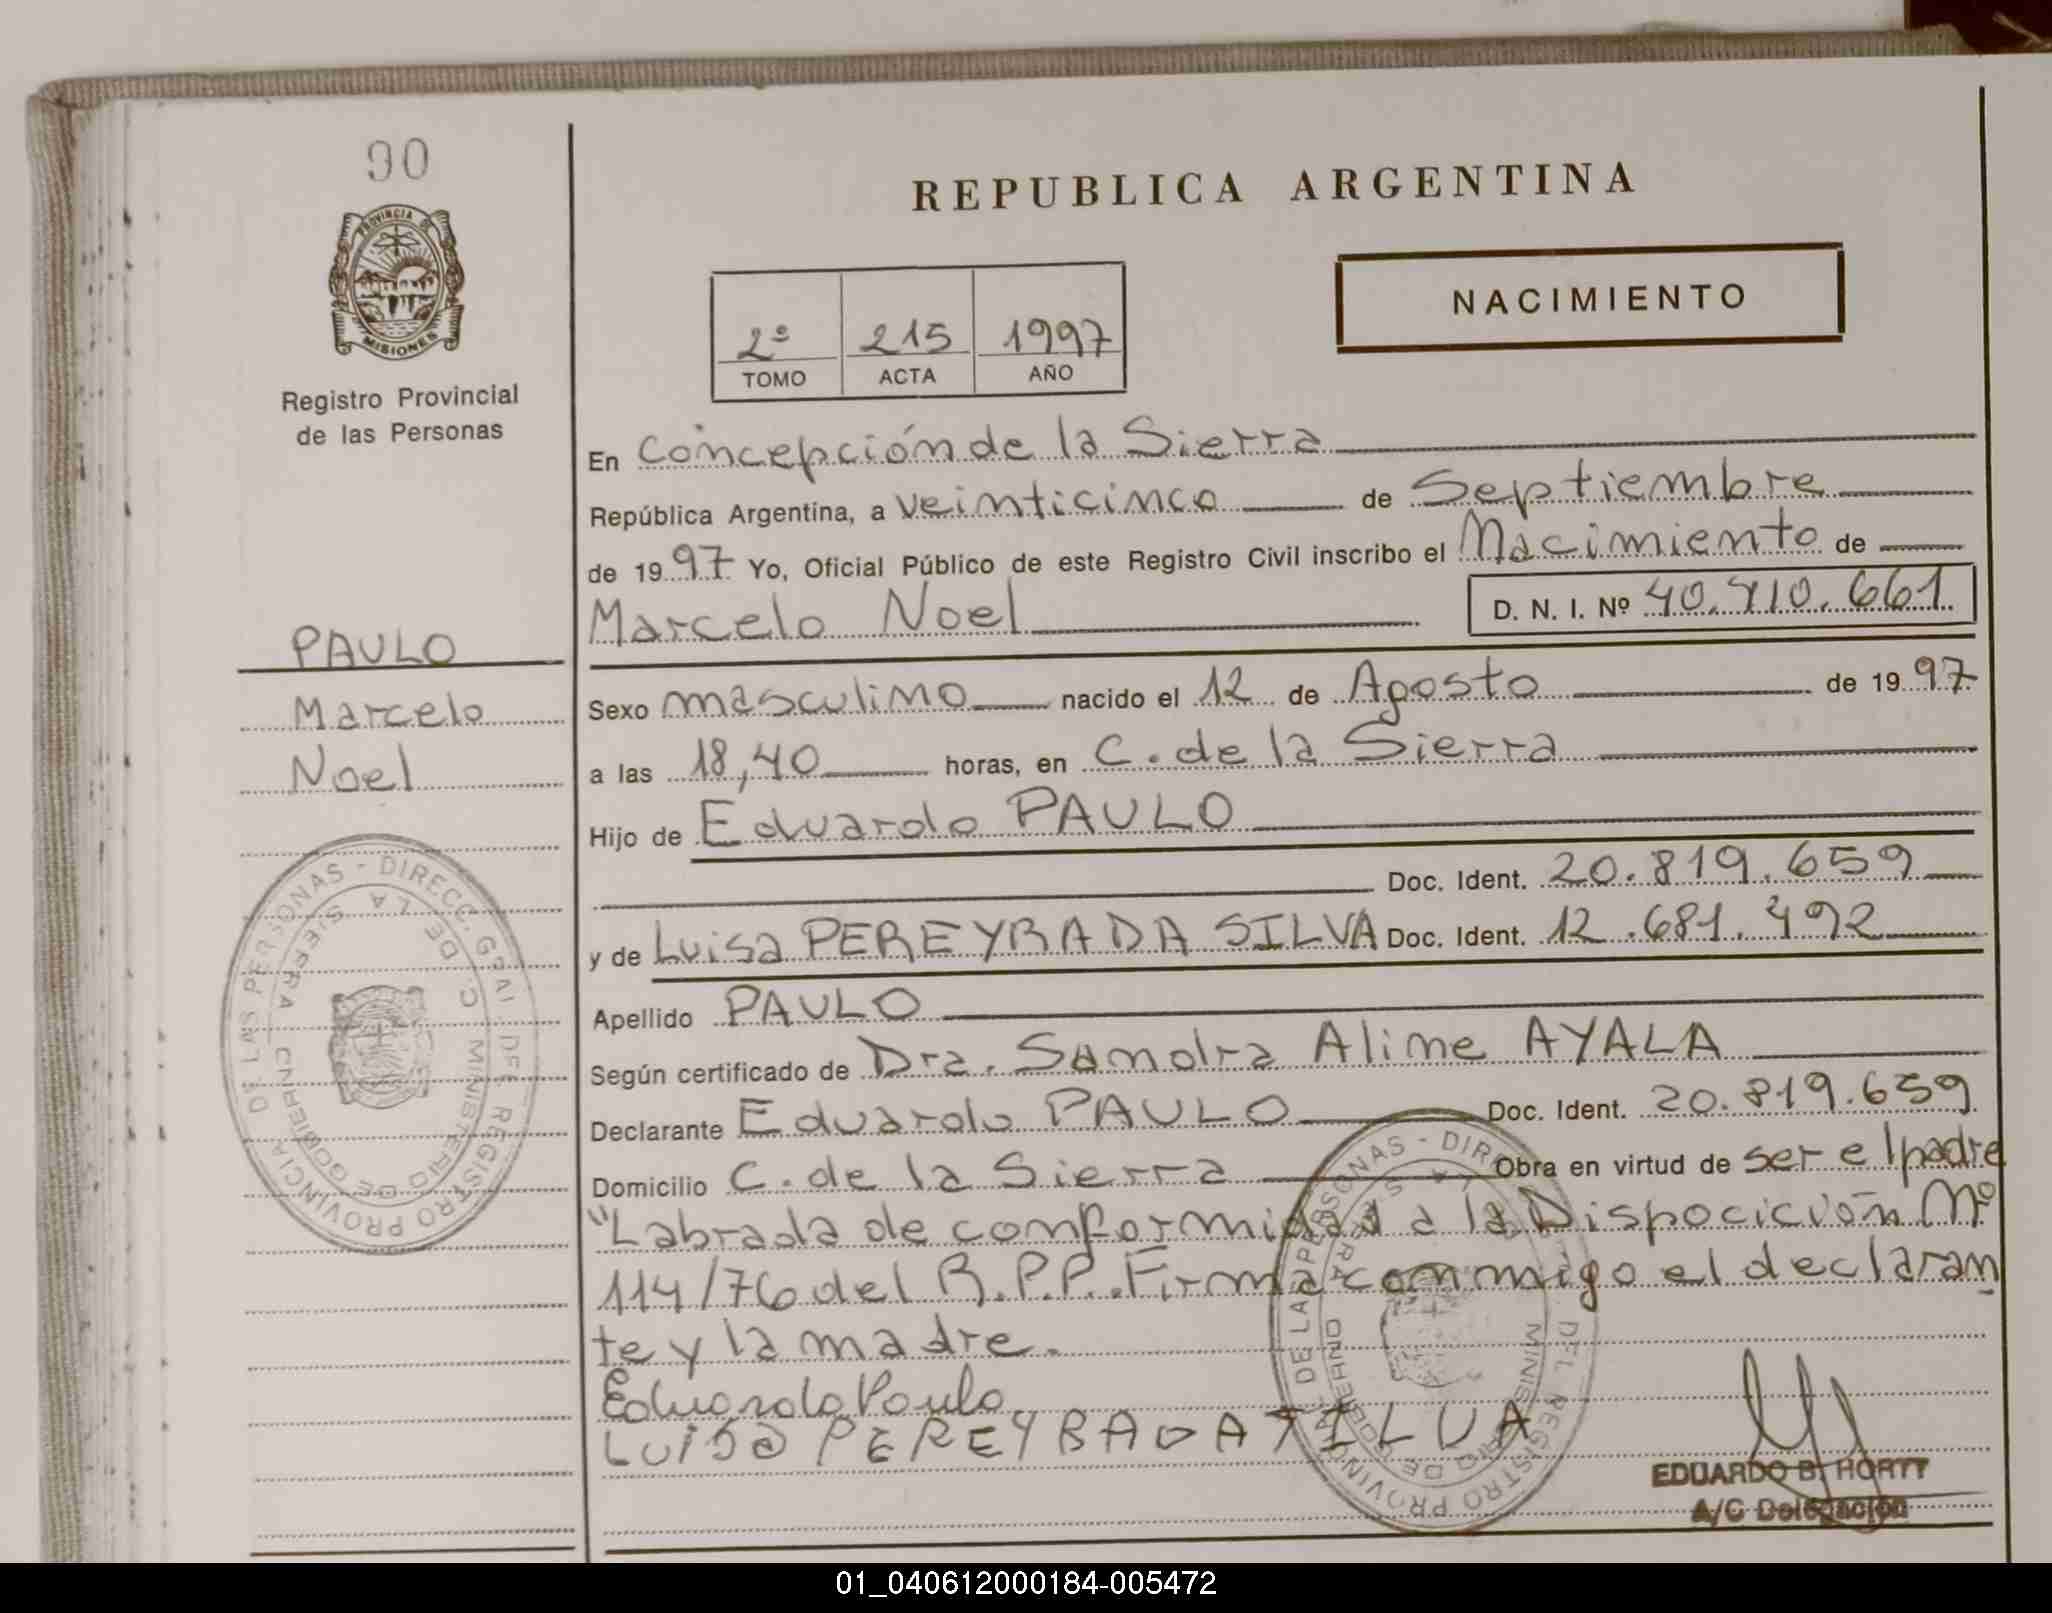 90
PROVINCIA DE
MISIONES
Registro Provincial
de las Personas
PAULO
Marcelo
Noel
REPUBLICA ARGENTINA
NACIMIENTO
2º 215 1997
TOMO ACTA AÑO
En Concepción de la Sierra
República Argentina, a veinticinco de Septiembre
de 1997 Yo, Oficial Público de este Registro Civil inscribo el Nacimiento de
Marcelo Noel D. N. I. Nº 40.410.661
Sexo masculino nacido el 12 de Agosto de 1997
a las 18,40 horas, en C. de la Sierra
Hijo de Eduardo PAULO
Doc. Ident. 20.819.659
y de Luisa PEREYRA DA SILVA Doc. Ident. 12.681.492
Apellido PAULO
Según certificado de Dra. Sandra Aline AYALA
Declarante Eduardo PAULO Doc. Ident. 20.819.659
Domicilio C. de la Sierra Obra en virtud de ser el padre
"Labrada de conformidad a la Dispocición Nº
114/76 del R.P.P. Firma conmigo el declaran
te y la madre.
Eduardo Paulo
LUISA PEREYRA DA SILVA
EDUARDO B. HORTT
A/C Delegación
DIRECC. GRAL. DEL REGISTRO PROVINCIAL DE LAS PERSONAS -
MINISTERIO DE GOBIERNO C. DE LA SIERRA
01_040612000184-005472